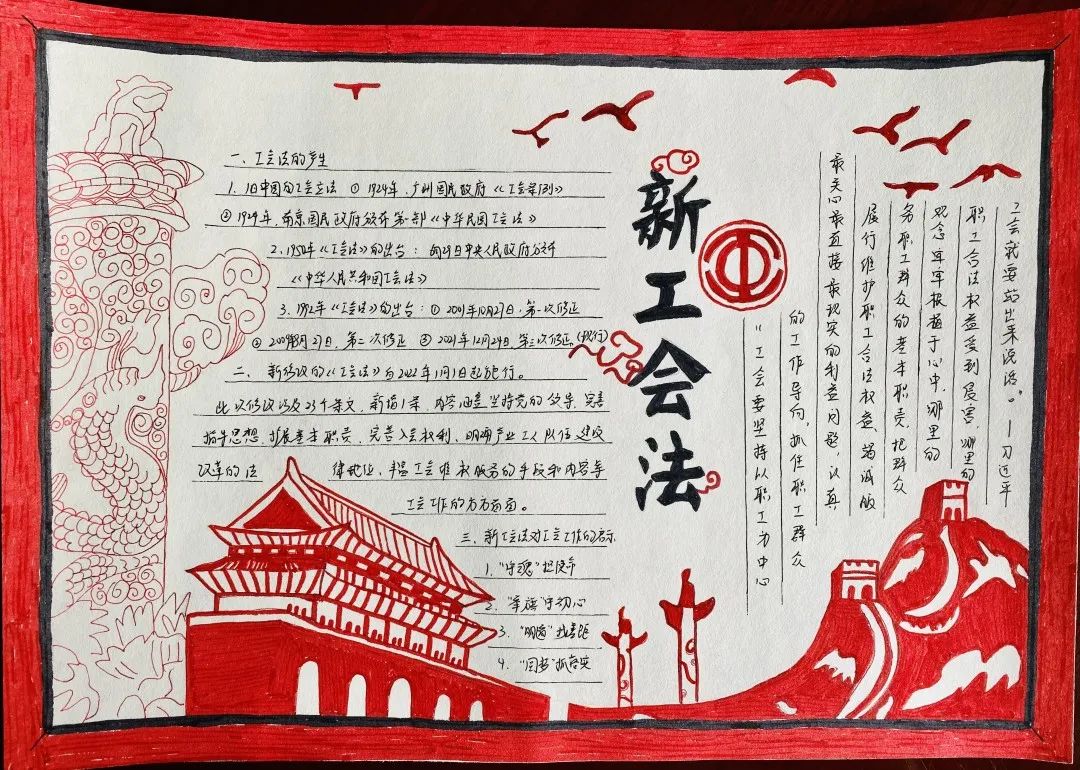 新工会法
一、工会法的产生
1. 旧中国的工会立法 ① 1924年，广州国民政府《工会条例》
② 1929年，南京国民政府颁布第一部《中华民国工会法》
2. 1950年《工会法》的出台： 6月29日中央人民政府颁布
《中华人民共和国工会法》
3. 1992年《工会法》的出台：① 2001年10月27日，第一次修正
② 2009年8月27日，第二次修正 ③ 2021年12月24日，第三次修正(现行)
二、 新修改的《工会法》自2022年1月1日起施行。
此次修改涉及23个条文，新增1条，内容涵盖坚持党的领导、完善
指导思想、扩展基本职责、完善入会权利、明确产业工人队伍建设
改革的法 律地位、丰富工会维权服务的手段和内容等
工会工作的方方面面。
三、新工会法对工会工作的启示
1. “守魂”担使命
2. “举旗”守初心
3. “明道”找差距
4. “圆梦”抓落实
“工会要坚持以职工为中心
的工作导向，抓住职工群众
最关心最直接最现实的利益问题，认真
履行维护职工合法权益、竭诚服
务职工群众的基本职责，把群众
观念牢牢根植于心中，哪里的
职工合法权益受到侵害，哪里的
工会就要站出来说话。”——习近平